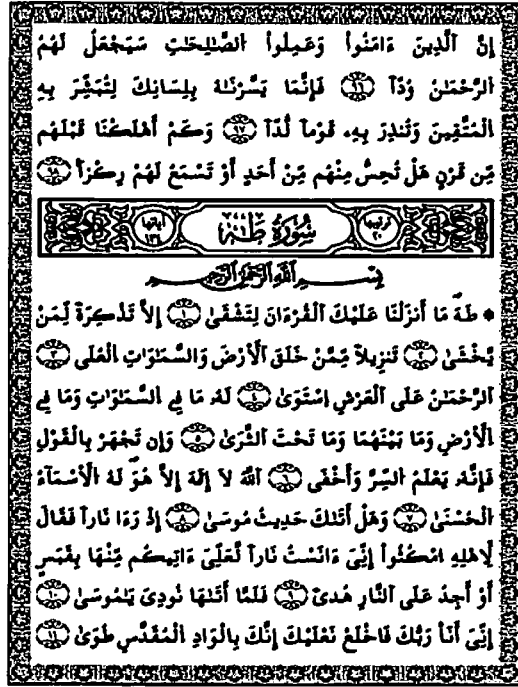 إِنَّ ٱلَّذِينَ ءَامَنُواْ وَعَمِلُواْ ٱلصَّٰلِحَٰتِ سَيَجْعَلُ لَهُمُ
ٱلرَّحْمَٰنُ وُدّاٗ ٩٦ فَإِنَّمَا يَسَّرْنَٰهُ بِلِسَانِكَ لِتُبَشِّرَ بِهِ
ٱلْمُتَّقِينَ وَتُنذِرَ بِهِۦ قَوْماٗ لُّدّاٗ ٩٧ وَكَمْ أَهْلَكْنَا قَبْلَهُم
مِّن قَرْنٍ هَلْ تُحِسُّ مِنْهُم مِّنْ أَحَدٍ أَوْ تَسْمَعُ لَهُمْ رِكْزَاۢ ٩٨
ترتيبها ٢٠ سُورَةُ طَهَ آياتها ١٣٤
بِسْمِ ٱللَّهِ ٱلرَّحْمَٰنِ ٱلرَّحِيمِ
طَهَ مَا أَنزَلْنَا عَلَيْكَ ٱلْقُرْءَانَ لِتَشْقَىٰ ١ إِلَّا تَذْكِرَةٗ لِّمَنْ
يَّخْشَىٰ ٢ تَنزِيلاٗ مِّمَّنْ خَلَقَ ٱلْأَرْضَ وَٱلسَّمَٰوَٰتِ ٱلْعُلَى ٣
ٱلرَّحْمَٰنُ عَلَى ٱلْعَرْشِ ٱسْتَوَىٰ ٤ لَهُۥ مَا فِي ٱلسَّمَٰوَٰتِ وَمَا فِي
ٱلْأَرْضِ وَمَا بَيْنَهُمَا وَمَا تَحْتَ ٱلثَّرَىٰ ٥ وَإِن تَجْهَرْ بِٱلْقَوْلِ
فَإِنَّهُۥ يَعْلَمُ ٱلسِّرَّ وَأَخْفَى ٦ ٱللَّهُ لَا إِلَٰهَ إِلَّا هُوَ لَهُ ٱلْأَسْمَآءُ
ٱلْحُسْنَىٰ ٧ وَهَلْ أَتَىٰكَ حَدِيثُ مُوسَىٰ ٨ إِذْ رَءَا نَاراٗ فَقَالَ
لِأَهْلِهِ ٱمْكُثُواْ إِنِّيَ ءَانَسْتُ نَاراٗ لَّعَلِّيَ ءَاتِيكُم مِّنْهَا بِقَبَسٍ
أَوْ أَجِدُ عَلَى ٱلنَّارِ هُدىٗ ٩ فَلَمَّا أَتَىٰهَا نُودِيَ يَٰمُوسَىٰ ١٠
إِنِّيَ أَنَا رَبُّكَ فَٱخْلَعْ نَعْلَيْكَ إِنَّكَ بِٱلْوَادِ ٱلْمُقَدَّسِ طُوَىٰ ١١